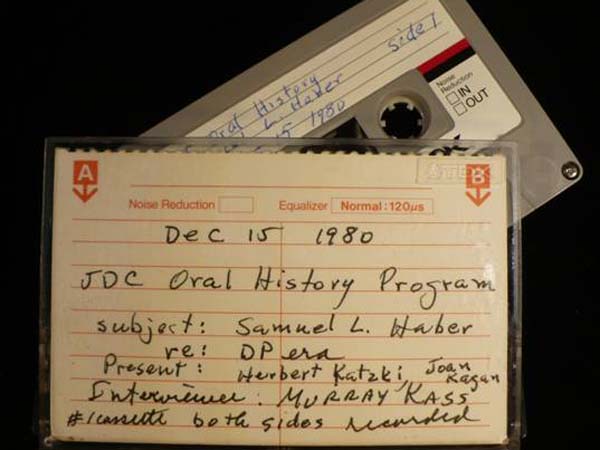 Oral History
L. Haber
15 1980
side 1
Noise
Reduction
IN
OUT
A
B
TDK
Noise Reduction
Equalizer Normal:120µs
Dec 15 1980
JDC Oral History Program
subject: Samuel L. Haber
re: DP era
Present: Herbert Katzki, Joan Kagan
Interviewer: MURRAY KASS
#1 cassette both sides recorded